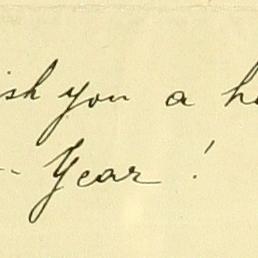 ish you a ha
-- Year!